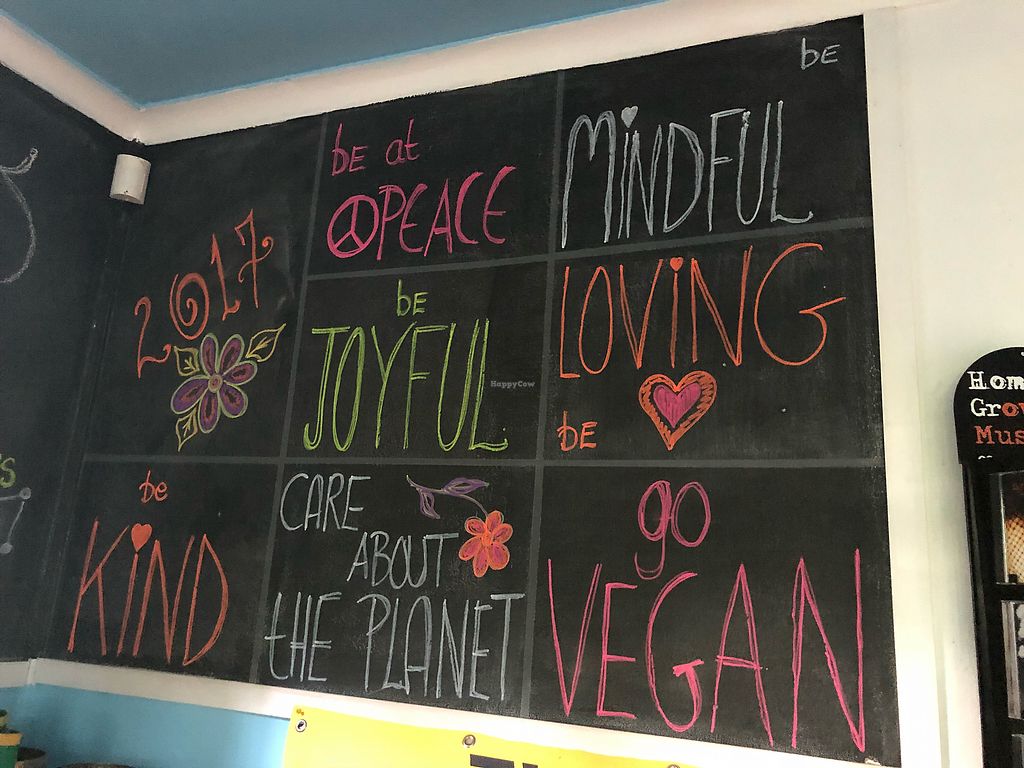 2017
be at
PEACE
be
MiNDFUL
be
JOYFUL
LOViNG
be
be
KiND
CARE
ABOUT
tHE PLANET
go
VEGAN
HappyCow